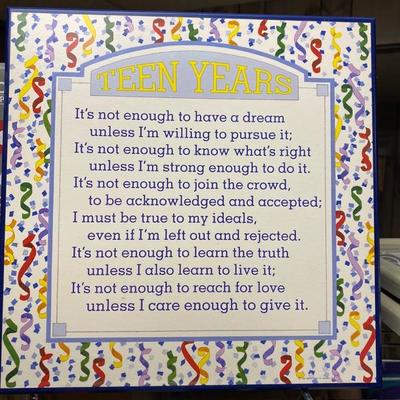 TEEN YEARS
It's not enough to have a dream
unless I'm willing to pursue it;
It's not enough to know what's right
unless I'm strong enough to do it.
It's not enough to join the crowd,
to be acknowledged and accepted;
I must be true to my ideals,
even if I'm left out and rejected.
It's not enough to learn the truth
unless I also learn to live it;
It's not enough to reach for love
unless I care enough to give it.